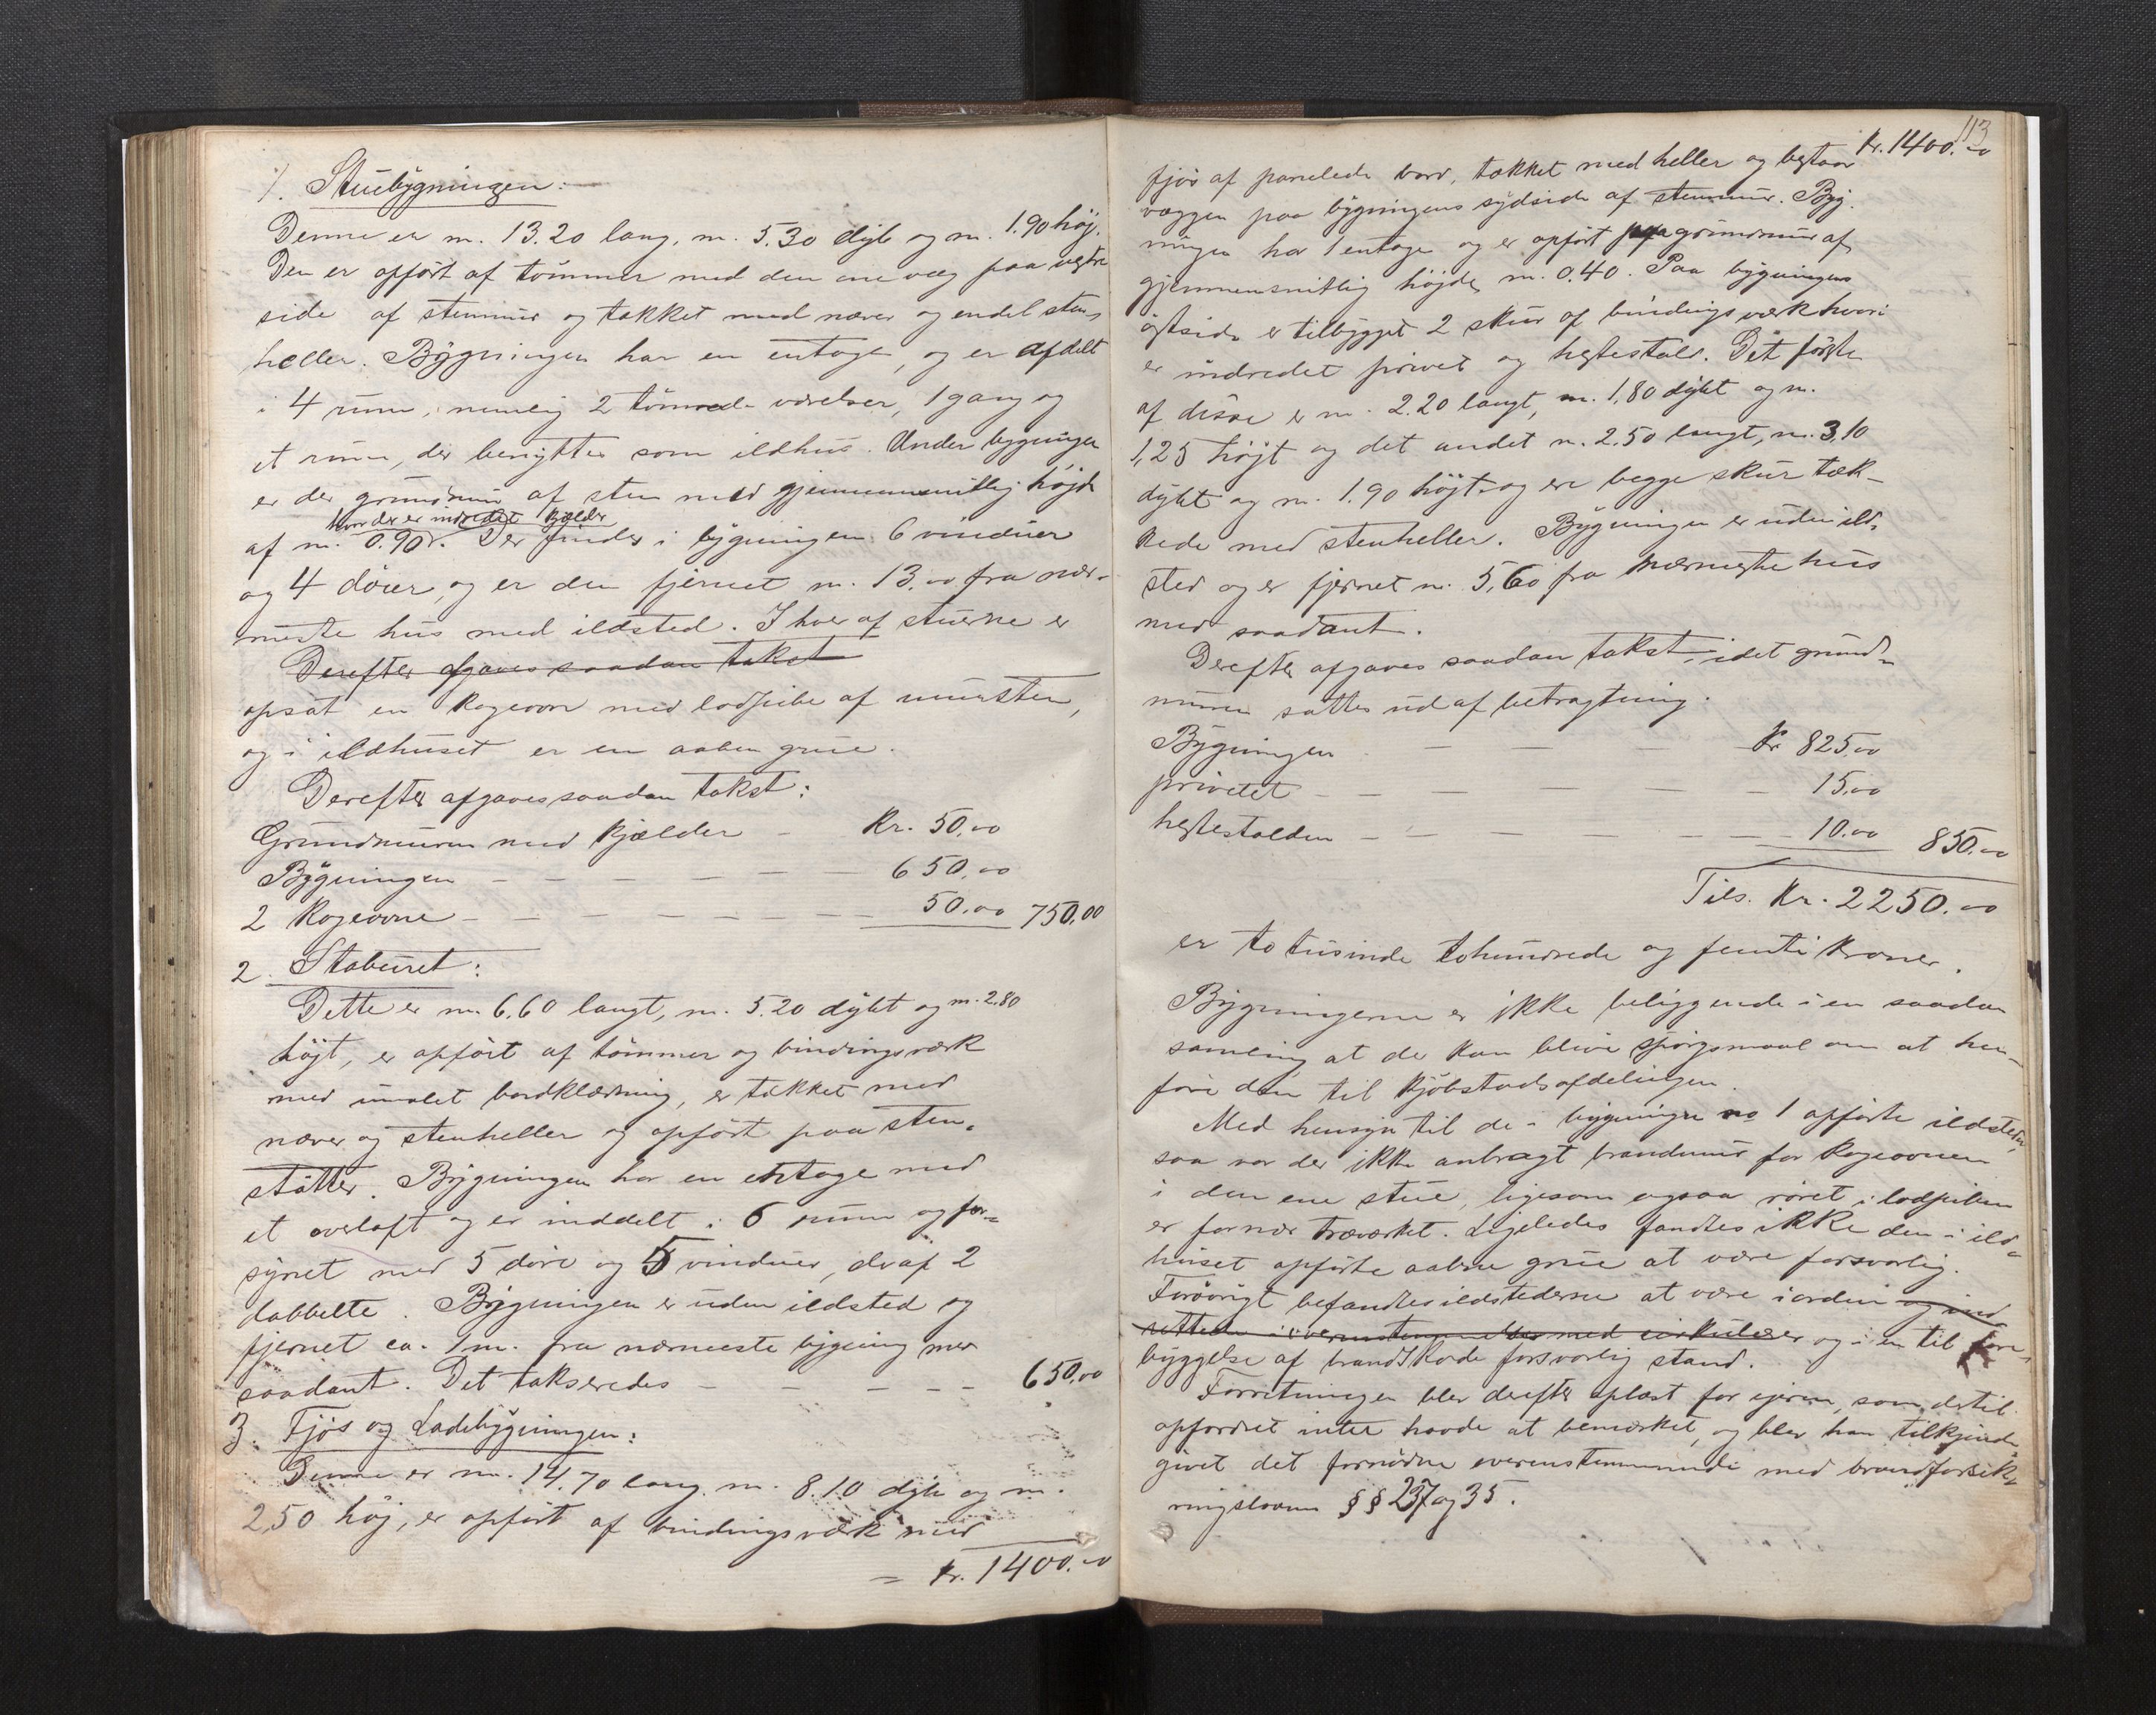 1. Stuebygningen:
Denne er m. 13.20 lang, m. 5.30 dyb og m. 1.90 høj.
Den er opført af tømmer med den ene væg paa vestre
side af stenmur og tækket med næver og endel sten-
heller. Bygningen har en entage, og er afdelt
i 4 rum, nemlig 2 tømrede værelser, 1 gang og
et rum, der benyttes som ildhus. Under bygningen
er der grundmur af sten med gjennemsnitlig højde
hvor der er indredet kjelder
af m. 0.90. Der findes i bygningen 6 vinduer
og 4 døre, og er den fjernet m. 13,00 fra nær-
meste hus med ildsted. I hver af stuerne er
Derefter afgaves saadan takst
opsat en kogeovn med lodpibe af mursten,
og i ildhuset er en aaben grue.
Derefter afgaves saadan takst:
Grundmuren med kjælder - Kr. 50.00
Bygningen - - - - - - 650.00
2 Kogeovne - - - - - - - 50.00 750.00
2. Staburet:
Dette er m. 6.60 langt, m. 5.20 dybt og m. 2.80
højt, er opført af tømmer og bindingsværk
med umalet bordklædning, er tækket med
næver og stenheller og opført paa sten-
støtter. Bygningen har en etage med
et overloft og er inddelt i 6 rum og for-
synet med 5 døre og 5 vinduer, deraf 2
dobbelte. Bygningen er uden ildsted og
fjernet ca. 1 m. fra nærmeste bygning med
saadant. Det takseredes - - - - - 650.00
3. Fjøs og Ladebygningen:
Denne er m. 14.70 lang, m. 8.10 dyb og m.
2,50 høj, er opført af bindingsværk med
= Kr. 1400.00
113
Kr. 1400.00
fjøs af panelede bord, tækket med heller og bestaar
væggen paa bygningens sydside af stenmur. Byg-
ningen har 1 entage og er opført paa grundmur af
gjennemsnitlig højde m. 0.40. Paa bygningens
østside er tilbygget 2 skur af bindingsværk hvori
er indredet privet og hestestald. Det første
af disse er m. 2.20 langt, m. 1,80 dybt og m.
1,25 højt og det andet m. 2.50 langt, m. 3,10
dybt og m. 1.90 højt og ere begge skur tæk-
kede med stenheller. Bygningen er uden ild-
sted og er fjernet m. 5,60 fra nærmeste hus
med saadant.
Derefter afgaves saadan takst, idet grund-
muren sattes ud af betragtning.
Bygningen - - - - Kr 825.00
privetet - - - - - - 15.00
hestestalden - - - - - - - 10.00 850.00
Tils. Kr. 2250.00
er to tusinde tohundrede og femti Kroner.
Bygningerne er ikke beliggende i en saadan
samling at der kan blive spørgsmaal om at hen-
føre dem til kjøbstadsafdelingen.
Med hensyn til de i bygningen no 1 opførte ildsteder,
saa var der ikke anbragt brandmur for kogeovnen
i den ene stue, ligesom ogsaa røret i lodpiben
er for nær træværket. Ligeledes fandtes ikke den i ild-
huset opførte aabne grue at være forsvarlig.
Forøvrigt befandtes ildstederne at være i orden og ind
rettede i overensstemmelse med cirkulærer og i en til fore-
byggelse af brandskade forsvarlig stand.
Forretningen blev derefter oplæst for ejeren, som dertil
opfordret intet havde at bemærket, og blev han tilkjende-
givet det fornødne overensstemmende med brandforsik-
ringslovens §§ 237 og 35.